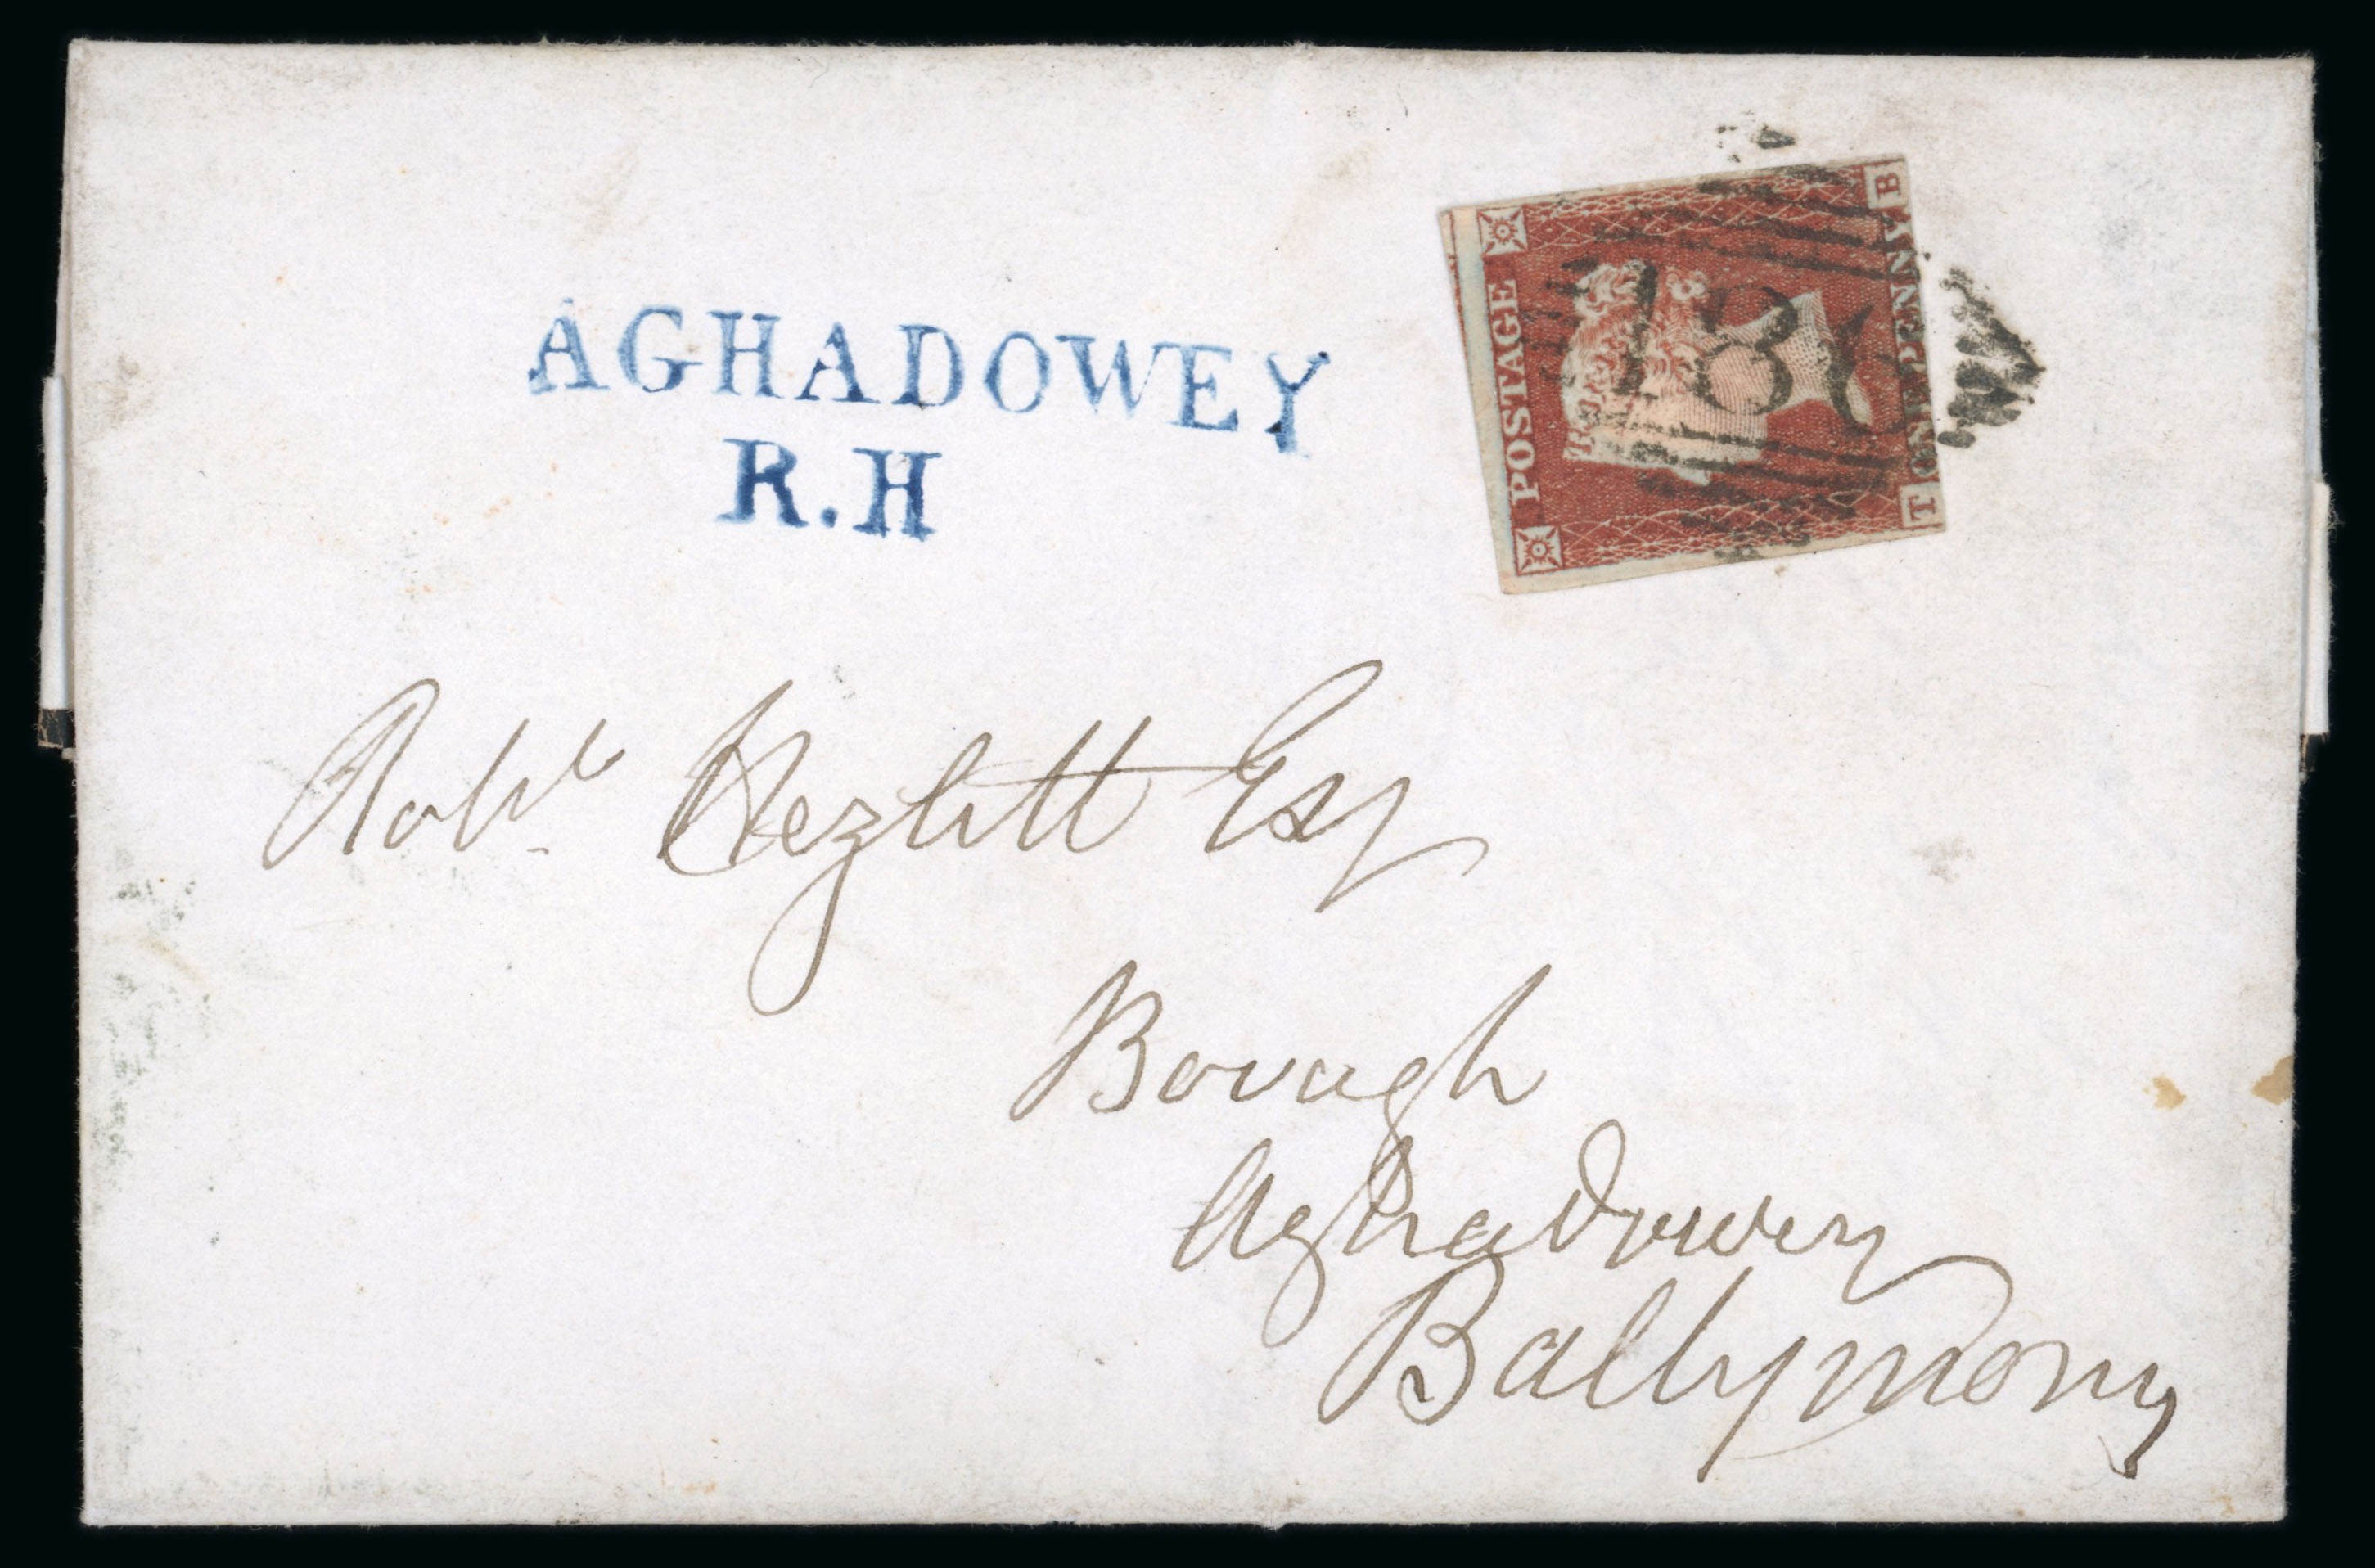 AGHADOWEY
R.H
POSTAGE
ONE PENNY
T B
Robt. Hezlett Esq
Bovagh
Aghadowey
Ballymony